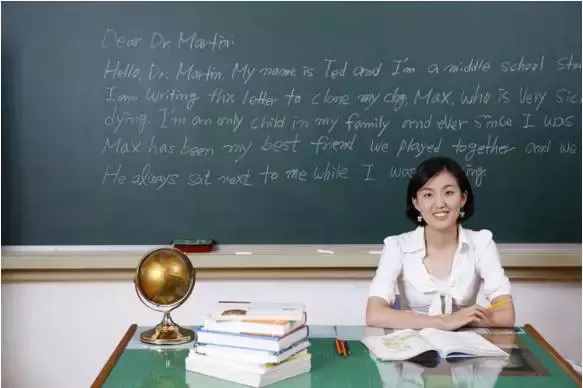 Dear Dr. Martin.
Hello, Dr. Martin. My name is Ted and I'm a middle school
I am writing this letter to clone my dog, Max, who is very
dying. I'm an only child in my family and ever since I was
Max has been my best friend. We played together and we
He always sat next to me while I was